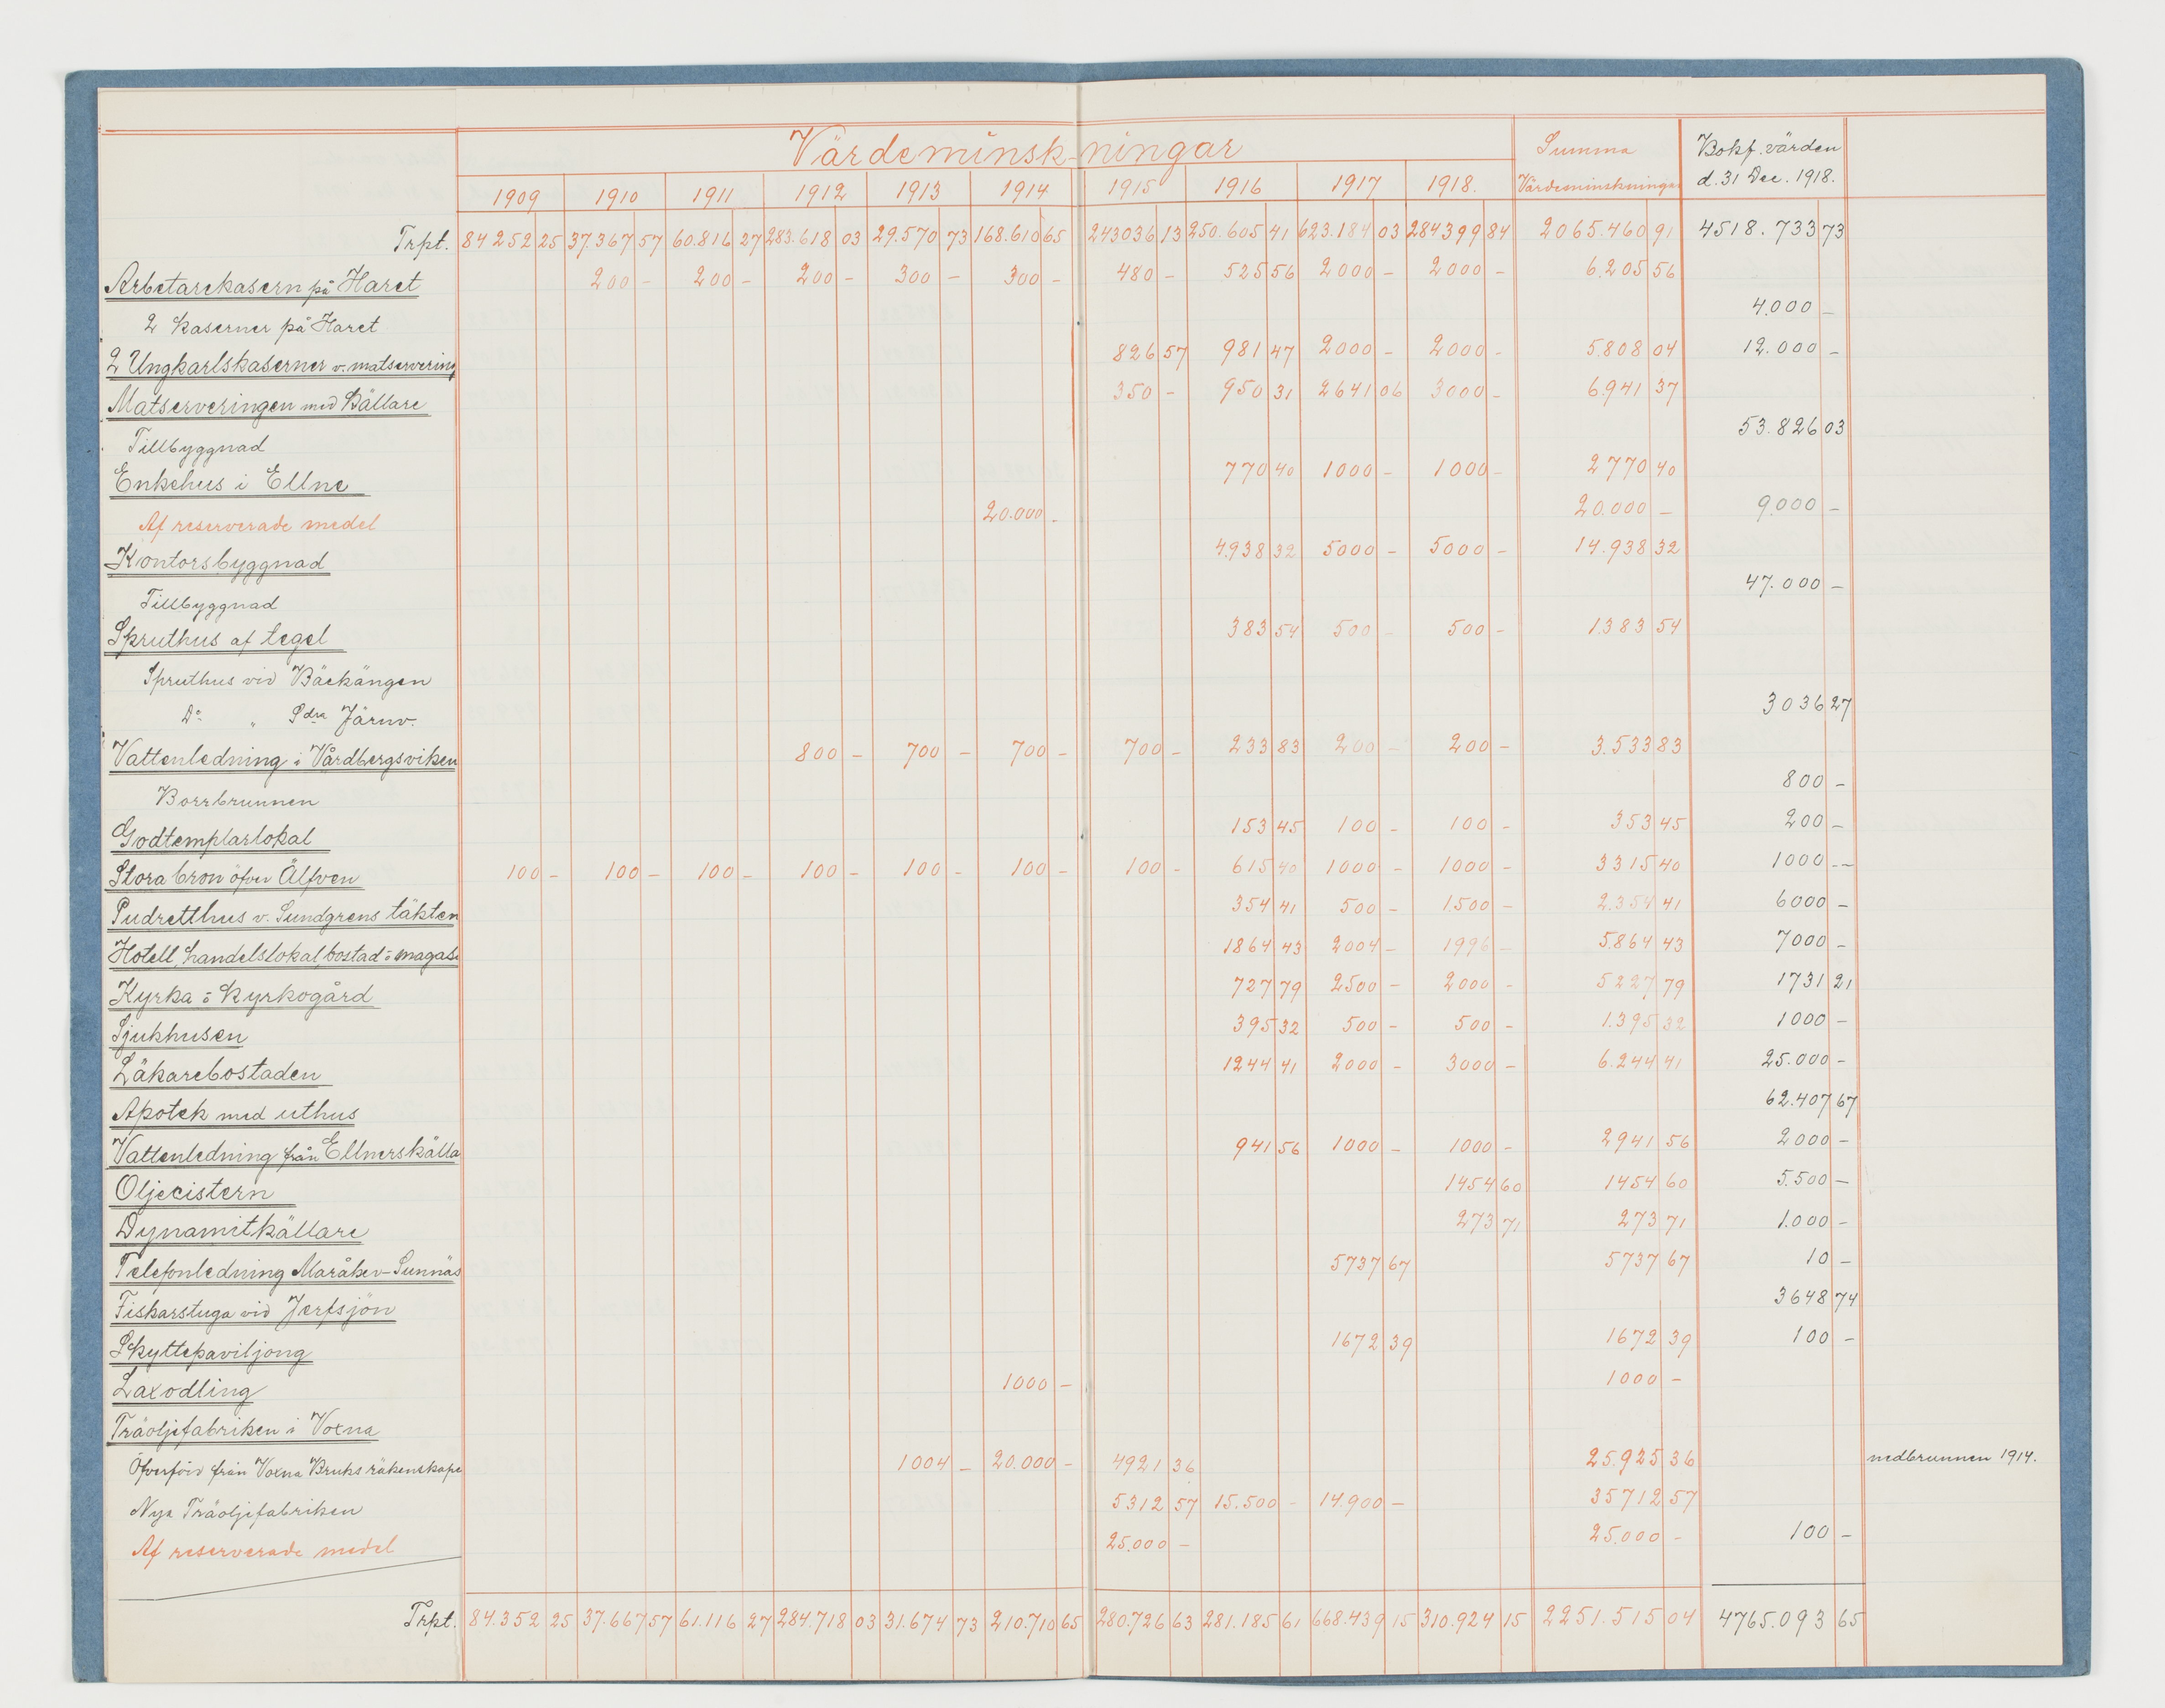 Värdeminskningar Summa Bokf. värden
1909 1910 1911 1912 1913 1914 1915 1916 1917 1918. Värdeminskningar d. 31 Dec. 1918.
Trpt. 84252 25 37.367 57 60.816 27 283.618 03 29.570 73 168.610 65 243036 13 250.605 41 623.184 03 284399 84 2065.460 91 4518.733 73
Arbetarekasern på Haret 200 – 200 – 200 – 300 – 300 – 480 – 525 56 2000 – 2000 – 6.205 56
2 kaserner på Haret 4.000 –
2 Ungkarlskaserner v. matservering 826 57 981 47 2000 – 2000 – 5.808 04 12.000 –
Matserveringen med Källare 350 – 950 31 2641 06 3000 – 6.941 37
Tillbyggnad 53.826 03
Enkehus i Ellne 770 40 1000 – 1000 – 2770 40
Af reserverade medel 20.000 – 20.000 – 9.000 –
Kontorsbyggnad 4.938 32 5000 – 5000 – 14.938 32
Tillbyggnad 47.000 –
Spruthus af tegel 383 54 500 – 500 – 1.383 54
Spruthus vid Bäckängen
Do " Sdra Järnv. 3036 27
Vattenledning i Vårdbergsviken 800 – 700 – 700 – 700 – 233 83 200 – 200 – 3.533 83
Borrbrunnen 800 –
Godtemplarlokal 153 45 100 – 100 – 353 45 200 –
Stora bron öfver Älfven 100 – 100 – 100 – 100 – 100 – 100 – 100 – 615 40 1000 – 1000 – 3315 40 1000 –
Pudretthus v. Sundgrens täkten 354 41 500 – 1.500 – 2.354 41 6000 –
Hotell, handelslokal, bostad o magasi 1864 43 2004 – 1996 – 5.864 43 7000 –
Kyrka o Kyrkogård 727 79 2500 – 2000 – 5227 79 1731 21
Sjukhusen 395 32 500 – 500 – 1.395 32 1000 –
Läkarebostaden 1244 41 2000 – 3000 – 6.244 41 25.000 –
Apotek med uthus 62.407 67
Vattenledning från Ellnerskälla 941 56 1000 – 1000 – 2941 56 2000 –
Oljecistern 1454 60 1454 60 5.500 –
Dynamitkällare 273 71 273 71 1.000 –
Telefonledning Maråker–Sunnäs 5737 67 5737 67 10 –
Fiskarstuga vid Jerfsjön 3648 74
Skyttepaviljong 1672 39 1672 39 100 –
Laxodling 1000 – 1000 –
Träoljefabriken i Voxna
Öfverförd från Voxna Bruks räkenskape 1004 – 20.000 – 4921 36 25.925 36 nedbrunnen 1914.
Nya Träoljefabriken 5312 57 15.500 – 14.900 – 35712 57
Af reserverade medel 25.000 – 25.000 – 100 –
Trpt. 84.352 25 37.667 57 61.116 27 284.718 03 31.674 73 210.710 65 280.726 63 281.185 61 668.439 15 310.924 15 2251.515 04 4765.093 65